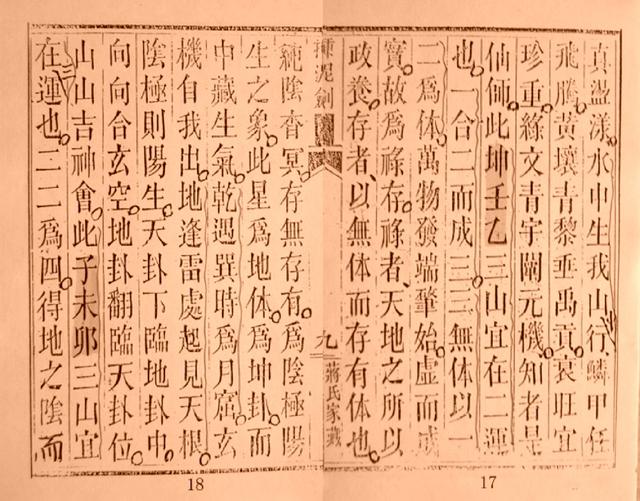 真盪漾水中生我山行鱗甲任
飛騰黃壤青黎垂禹貢衰旺宜
珍重綠文青宇闡元機知者是
仙師此坤壬乙三山宜在二運
也一合二而成三三無体以一
二為体萬物發端肇始虛而成
實故為祿存祿者天地之所以
政養存者以無体而存有体也
種泥劍
九
蔣氏家藏
純陰杳冥存無存有為陰極陽
生之象此星為地体為坤卦而
中藏生氣乾遇巽時為月窟玄
機自我出地逢雷處起見天根
陰極則陽生天卦下臨地卦中
向向合玄空地卦翻臨天卦位
山山吉神會此子未卯三山宜
在三運也二二為四得地之陰而
18
17